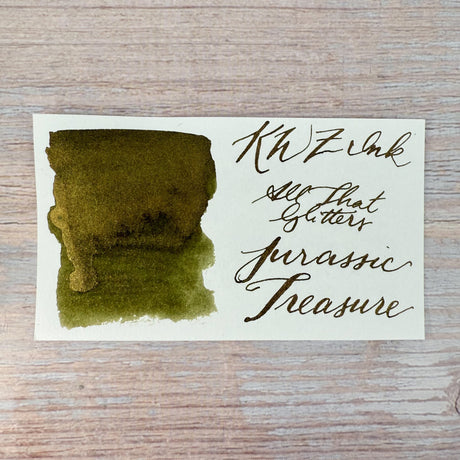 KWZ Ink
All That
Glitters
Jurassic
Treasure